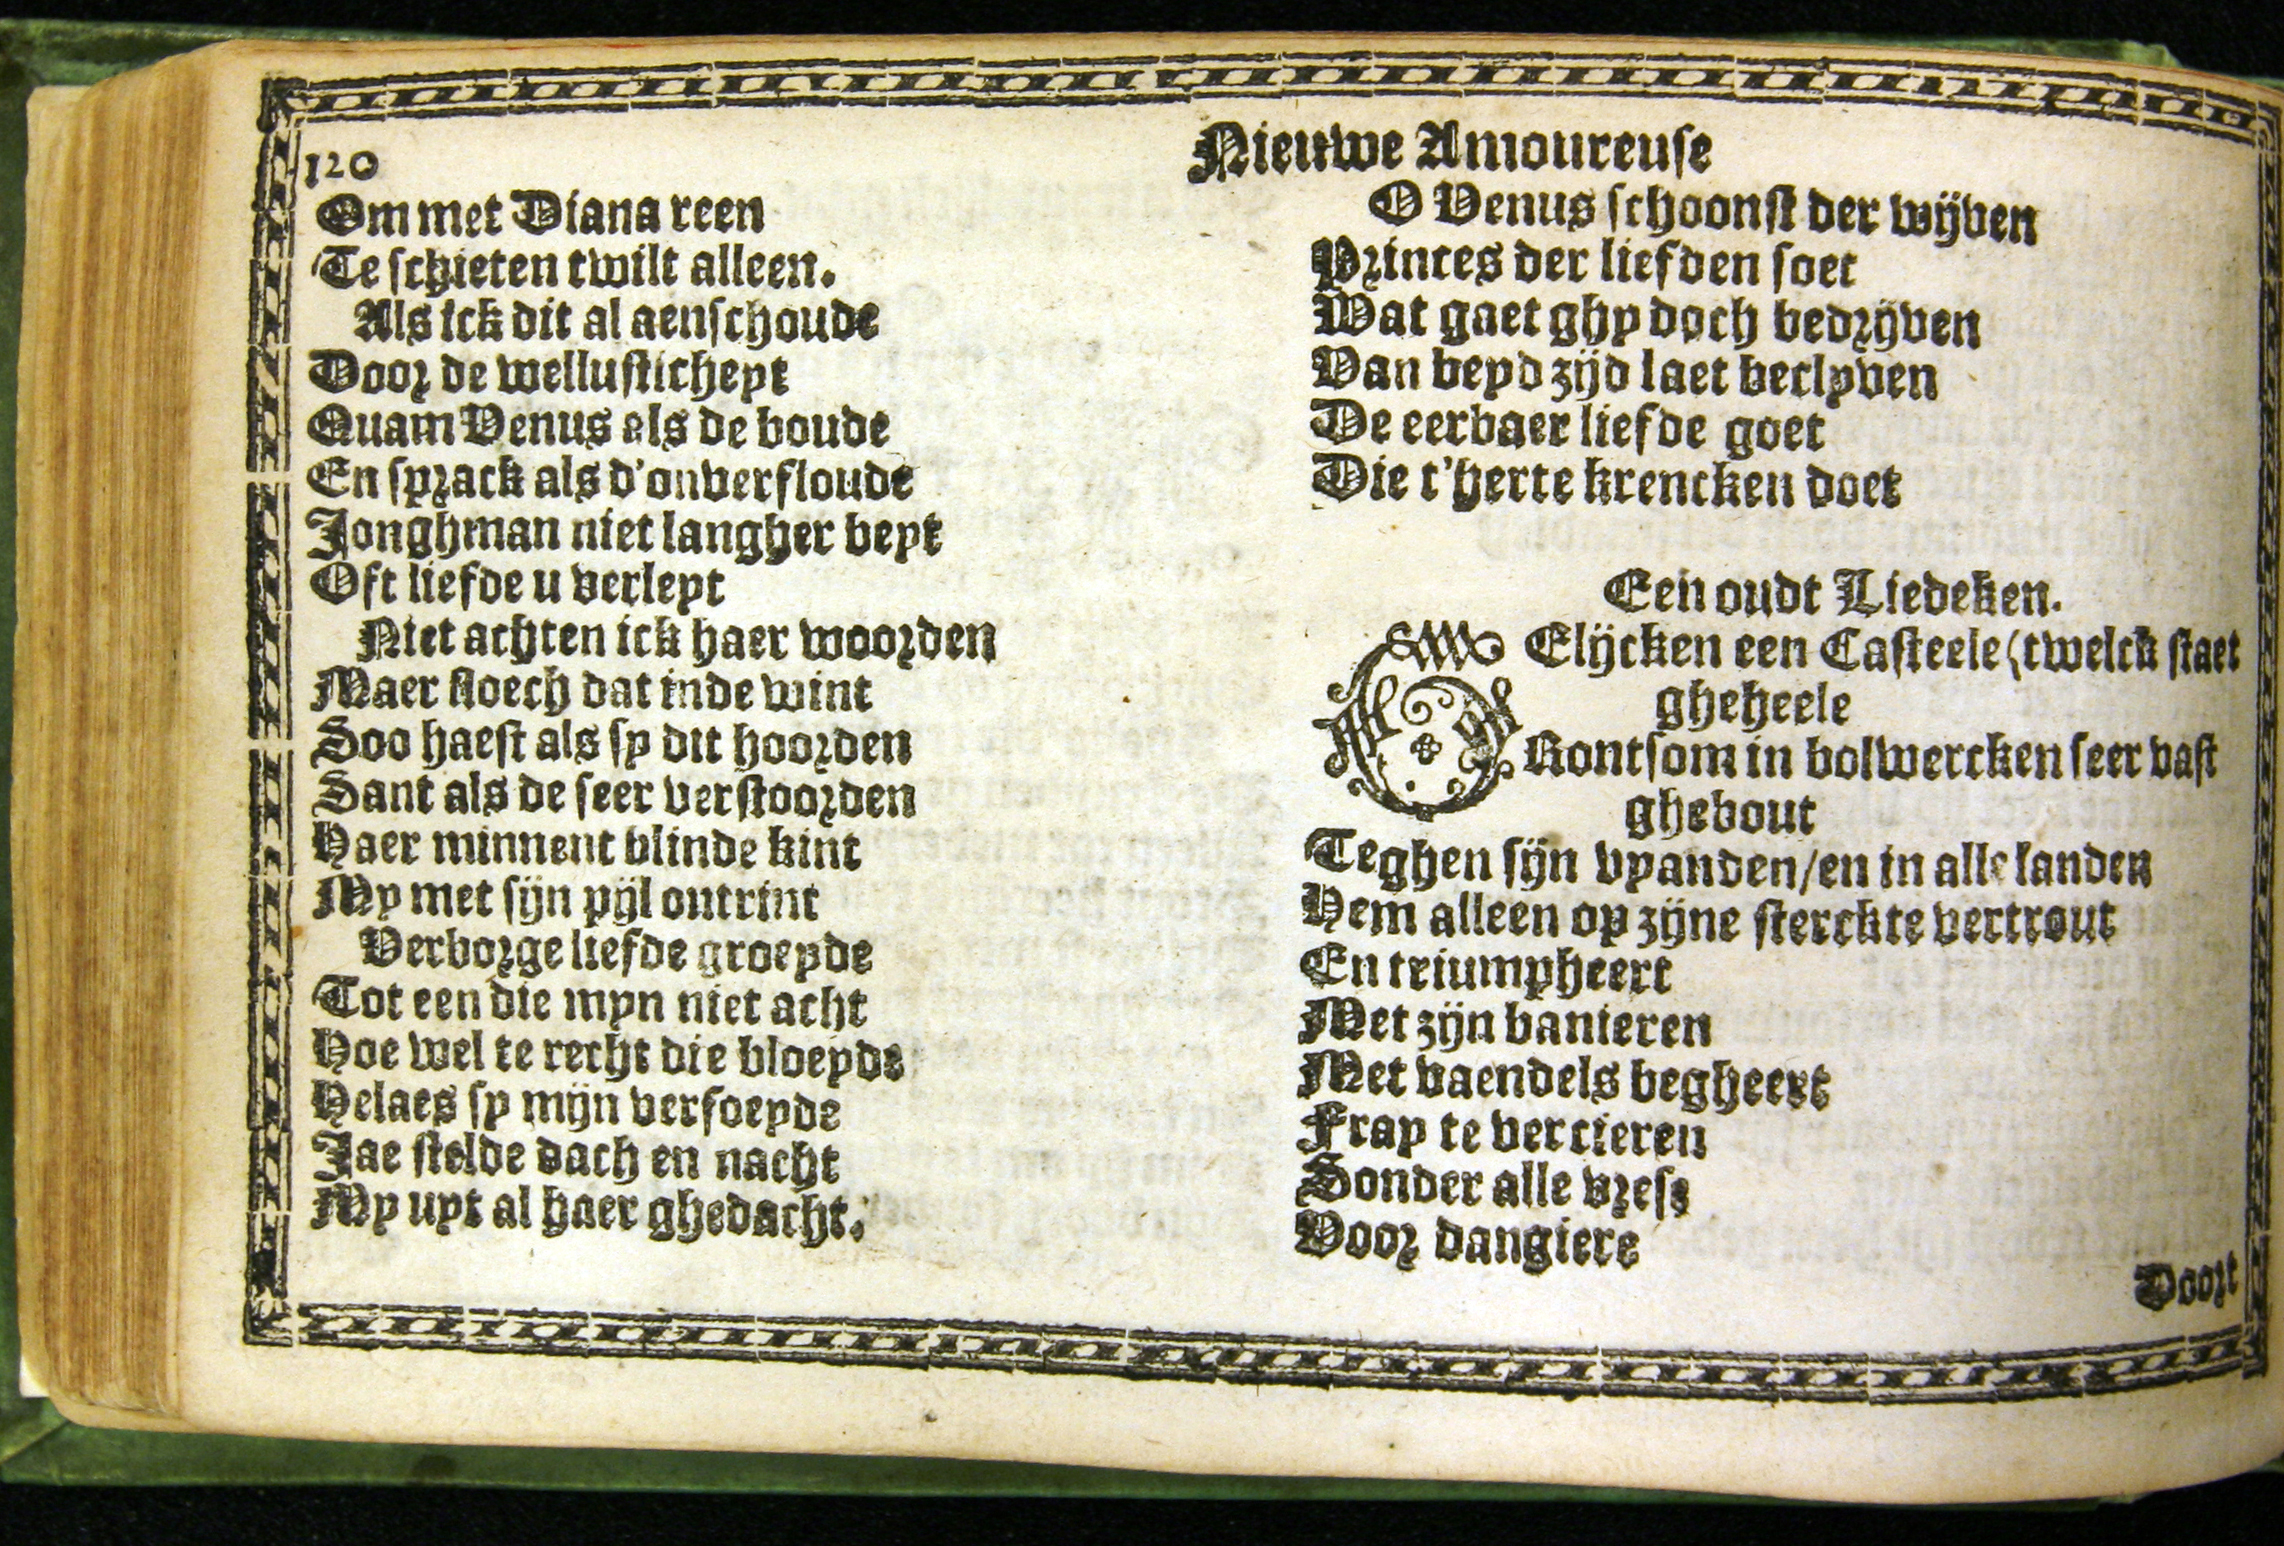 120
Nieuwe Amoureuse
Om met Diana reen
Te schieten twilt alleen.
Als ick dit al aenschoude
Door de wellusticheyt
Quam Venus als de boude
En sprack als d'onverfloude
Jonghman niet langher beyt
Oft liefde u verleyt
Niet achten ick haer woorden
Maer sloech dat inde wint
Soo haest als sy dit hoorden
Sant als de seer verstoorden
Haer minnent blinde kint
My met sijn pijl ontrint
Verborge liefde groeyde
Tot een die myn niet acht
Hoe wel te recht die bloeyde
Helaes sy mijn verfoeyde
Jae stelde dach en nacht
My uyt al haer ghedacht.
O Venus schoonst der wijven
Princes der liefden soet
Wat gaet ghy doch bedrijven
Van beyd zijd laet beclyven
De eerbaer liefde goet
Die t'herte krencken doet
Een oudt Liedeken.
GElijcken een Casteele (twelck staet
gheheele
Rontsom in bolwercken seer vast
ghebout
Teghen sijn vyanden/en in alle landen
Hem alleen op zijne sterckte vertrout
En triumpheert
Met zijn banieren
Met vaendels begheert
Fray te vercieren
Sonder alle vrese
Voor dangiere
Doort